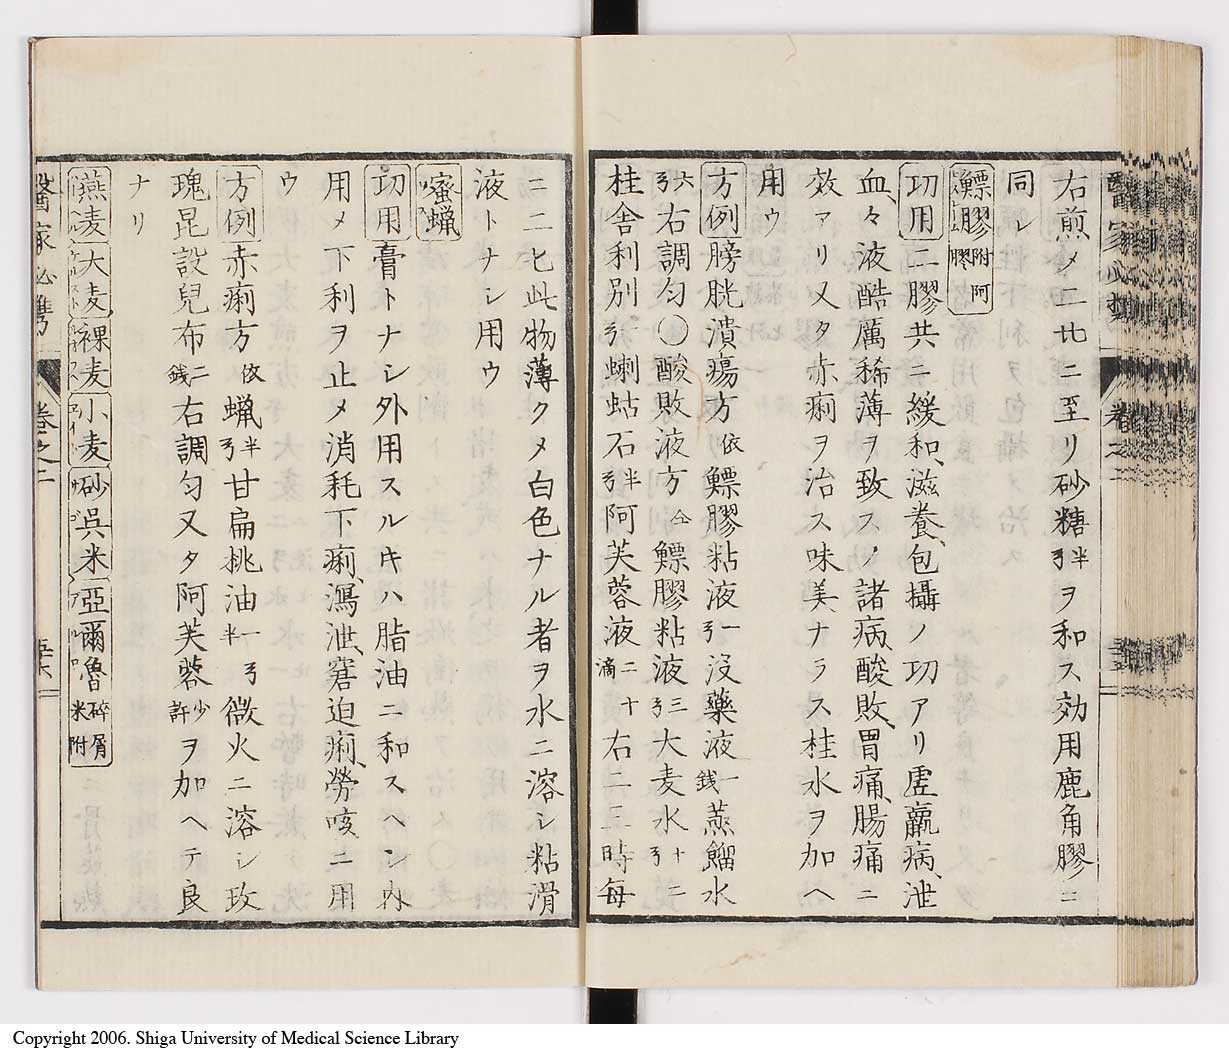 右煎メ二七ニ至リ砂糖半弓ヲ和ス効用鹿角膠ニ
同シ
鰾膠附阿膠
功用二膠共ニ緩和、滋養、包攝ノ功アリ虚羸病、泄
血、々液酷厲稀薄ヲ致スノ諸病、酸敗、胃痛、腸痛ニ
效アリ又タ赤痢ヲ治ス味美ナラス桂水ヲ加ヘ
用ウ
方例膀胱潰瘍方依鰾膠粘液一弓没藥液一銭蒸餾水
六弓右調匀〇酸敗液方仝鰾膠粘液三弓大麦水十二弓
桂舎利別弓蝲蛄石半弓阿芙蓉液二十滴右二三時毎
ニ二匕此物薄クメ白色ナル者ヲ水ニ溶シ粘滑
液トナシ用ウ
蜜蝋
功用膏トナシ外用スルキハ脂油ニ和スヘシ内
用メ下利ヲ止メ消耗下痢、瀉泄、窘迫痢、勞咳、ニ用
ウ
方例赤痢方依蝋半弓甘扁桃油一弓半微火ニ溶シ玫
瑰昆設兒布二銭右調匀又タ阿芙蓉少許ヲ加ヘテ良
ナリ
燕麦大麦裸麦小麦砂呉米亞爾魯碎屑米附
醫家必携 卷之二